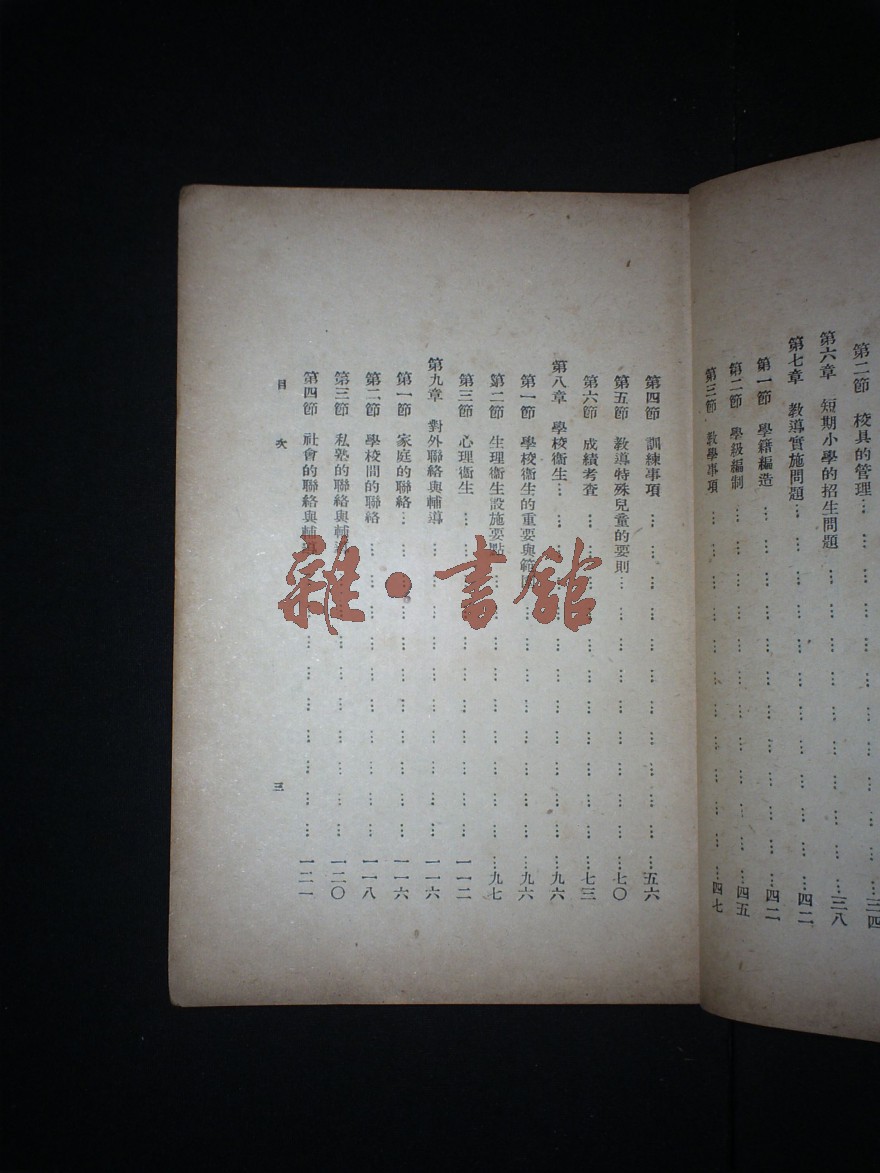 第二節 校具的管理……三四
第六章 短期小學的招生問題……三八
第七章 教導實施問題……四二
第一節 學籍編造……四二
第二節 學級編制……四五
第三節 教學事項……四七
第四節 訓練事項……五六
第五節 教導特殊兒童的要則……七〇
第六節 成績考查……七三
第八章 學校衞生……九六
第一節 學校衞生的重要與範……九六
第二節 生理衞生設施要點……九七
第三節 心理衞生……一一二
第九章 對外聯絡與輔導……一一六
第一節 家庭的聯絡……一一六
第二節 學校間的聯絡……一一八
第三節 私塾的聯絡與輔……一二〇
第四節 社會的聯絡與輔……一二一
目 次 三
雜·書館